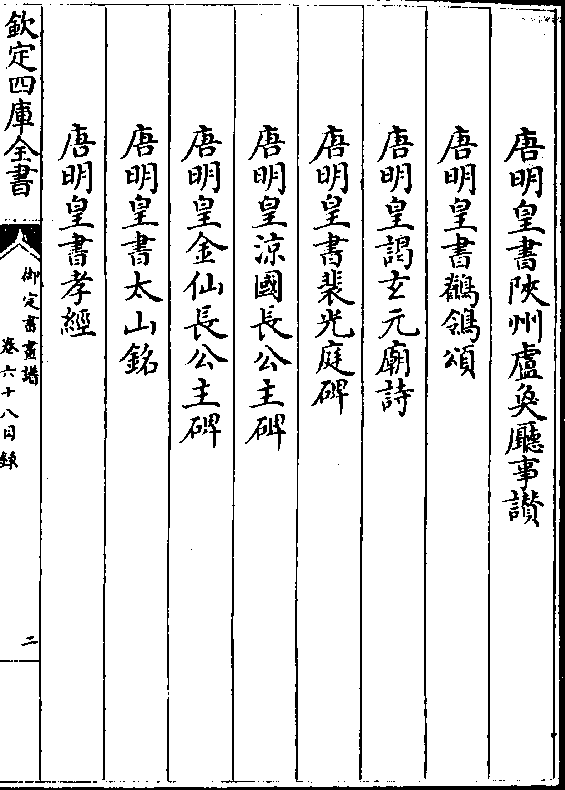 唐明皇書陜州盧奐廳事讃
唐明皇書鶺鴒頌
唐明皇謁玄元廟詩
唐明皇書裴光庭碑
唐明皇涼國長公主碑
唐明皇金仙長公主碑
唐明皇書太山銘
唐明皇書孝經
欽定四庫全書
御定書畫譜
卷六十八目録
二